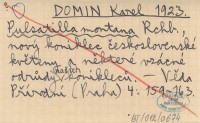 DOMIN Karel 1923.
Pulsatilla montana Rchb.,
nový koniklec československé
květeny a některé vzácné
odrůdy našich koniklecu. — Věda
Přírodní (Praha) 4: 159-163.